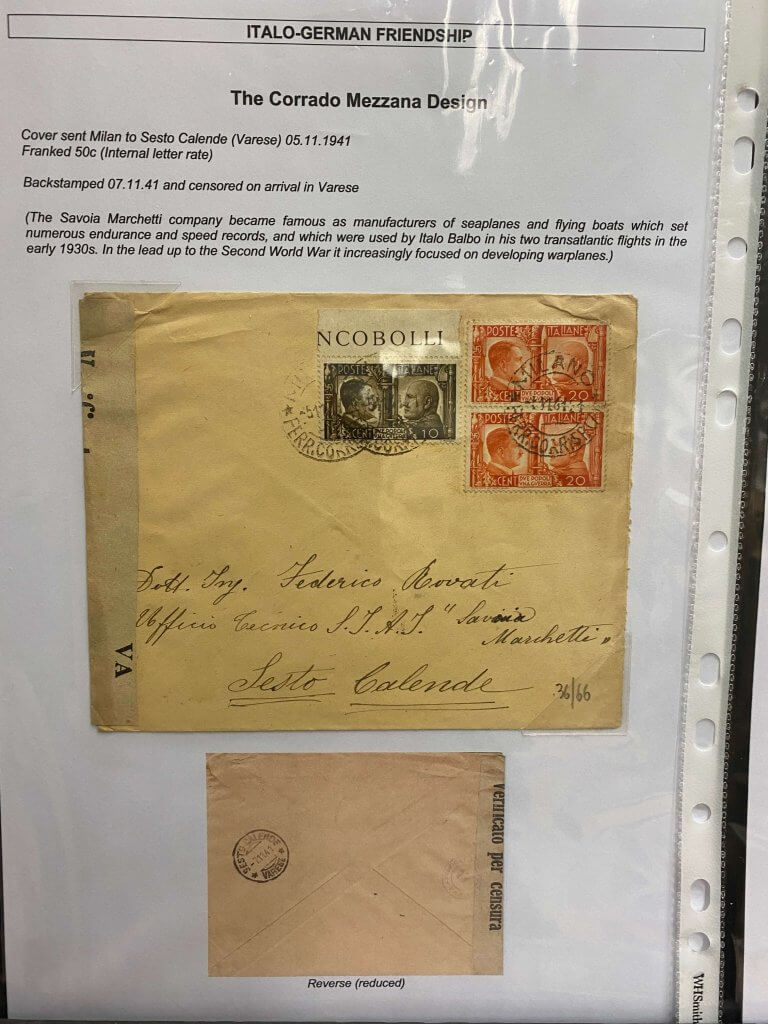 ITALO-GERMAN FRIENDSHIP
The Corrado Mezzana Design
Cover sent Milan to Sesto Calende (Varese) 05.11.1941
Franked 50c (Internal letter rate)
Backstamped 07.11.41 and censored on arrival in Varese
(The Savoia Marchetti company became famous as manufacturers of seaplanes and flying boats which set
numerous endurance and speed records, and which were used by Italo Balbo in his two transatlantic flights in the
early 1930s. In the lead up to the Second World War it increasingly focused on developing warplanes.)
NCOBOLLI
POSTE ITALIANE
CENT 10
POSTE ITALIANE
CENT DVE POPOLI 20
POSTE ITALIANE
CENT DVE POPOLI VNA GVERRA 20
MILANO
FERR.CORR.
Dott. Ing. Federico Rovati
Ufficio Tecnico S.I.A.I. "Savoia
Marchetti"
Sesto Calende
36/66
VA
SESTO CALENDE
VARESE
Verificato per censura
Reverse (reduced)
WHSmith